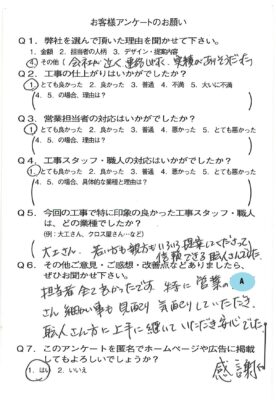 お客様アンケートのお願い
Q1. 弊社を選んで頂いた理由を聞かせて下さい。
1. 金額 2. 担当者の人柄 3. デザイン・提案内容
4. その他(会社が近く 連絡しやすく、実績がありそうだった)
Q2. 工事の仕上がりはいかがでしたか?
1. とても良かった 2. 良かった 3. 普通 4. 不満 5. 大いに不満
(4. 5. の場合、理由は? )
Q3. 営業担当者の対応はいかがでしたか?
1. とても良かった 2. 良かった 3. 普通 4. 悪かった 5. とても悪かった
(4. 5. の場合、理由は? )
Q4. 工事スタッフ・職人の対応はいかがでしたか?
1. とても良かった 2. 良かった 3. 普通 4. 悪かった 5. とても悪かった
(4. 5. の場合、具体的な業種と理由は? )
Q5. 今回の工事で特に印象の良かった工事スタッフ・職人
は、どの業種でしたか?
(例:大工さん、クロス屋さん…など)
大工さん、若い方も親方もいろいろ提案してくださって、
信頼できる職人さんでした
Q6. その他ご意見・ご感想・改善点などありましたら、
ぜひお聞かせ下さい。
担当者 全て良かったです 特に営業の A
さん 細かい事も 見配り 気配りしていただき、
職人さん方に上手に継いでいただき安心でした。
感謝
Q7. このアンケートを匿名でホームページや広告に掲載
してもよろしいでしょうか?
1. はい 2. いいえ